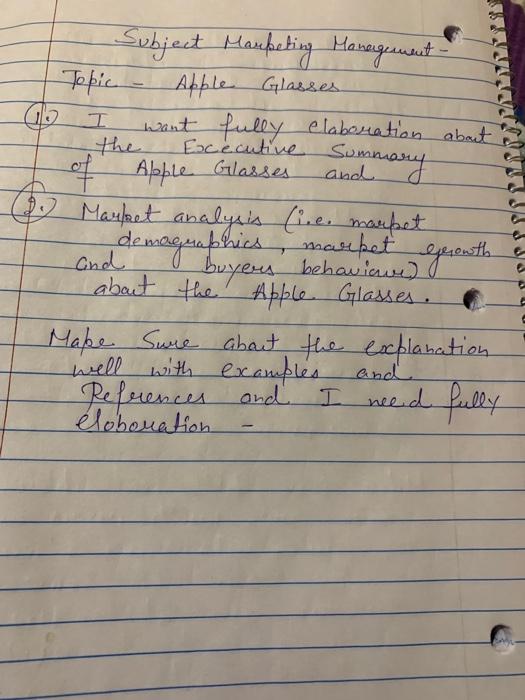 Subject Marketing Management -
Topic - Apple Glasses
1.) I want fully elaboration about
the Excecutive Summary
of Apple Glasses and
2.) Market analysis (i.e. market
demographics, market growth
and buyers behaviour)
about the Apple Glasses.
Make Sure about the explanation
well with examples and
References and I need fully
eloboration -